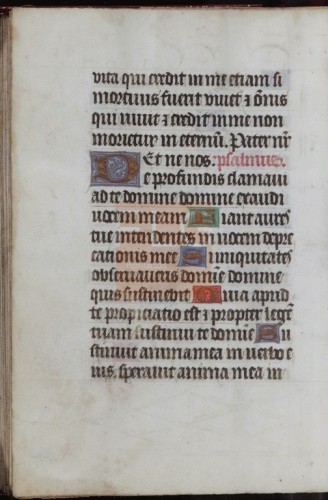 vita qui credit in me etiam si
mortuus fuerit vivet ⁊ omīs
qui vivit ⁊ credit in me non
morietur in eternū. Pater nr̄
Et ne nos. psalmus.
De profundis clamavi
ad te domine domine exaudi
vocem meam Fiant aures
tue intendentes in vocem depre
cationis mee Si iniquitates
observaveris domīe domine
quis sustinebit Quia apud
te propiciatio est ⁊ propter legē
tuam sustinui te domīe Su
stinuit anima mea in verbo e
ius. speravit anima mea in